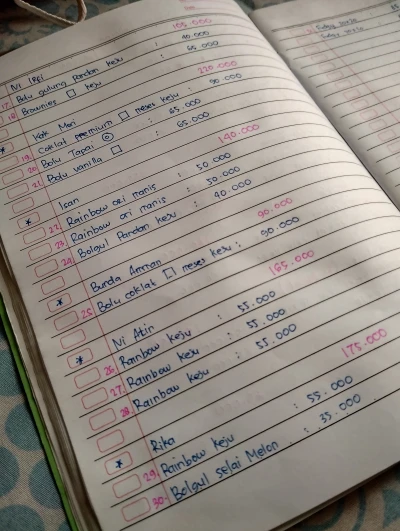 Ni 105.000
17. Bolu gulung Pandan keju : 40.000
18. Brownies keju : 65.000
* Kak Meri 220.000
19. Coklat premium meses keju : 90.000
20. Bolu Tapai : 65.000
21. Bolu vanilla : 65.000
* Isan 140.000
22. Rainbow ori manis : 50.000
23. Rainbow ori manis : 50.000
24. Bolgul Pandan keju : 40.000
* Bunda Amman 90.000
25. Bolu coklat meses keju : 90.000
* Ni Atin 165.000
26. Rainbow keju : 55.000
27. Rainbow keju : 55.000
28. Rainbow keju : 55.000
* Rika 175.000
29. Rainbow keju : 55.000
30. Bolgul selai Melon : 35.000